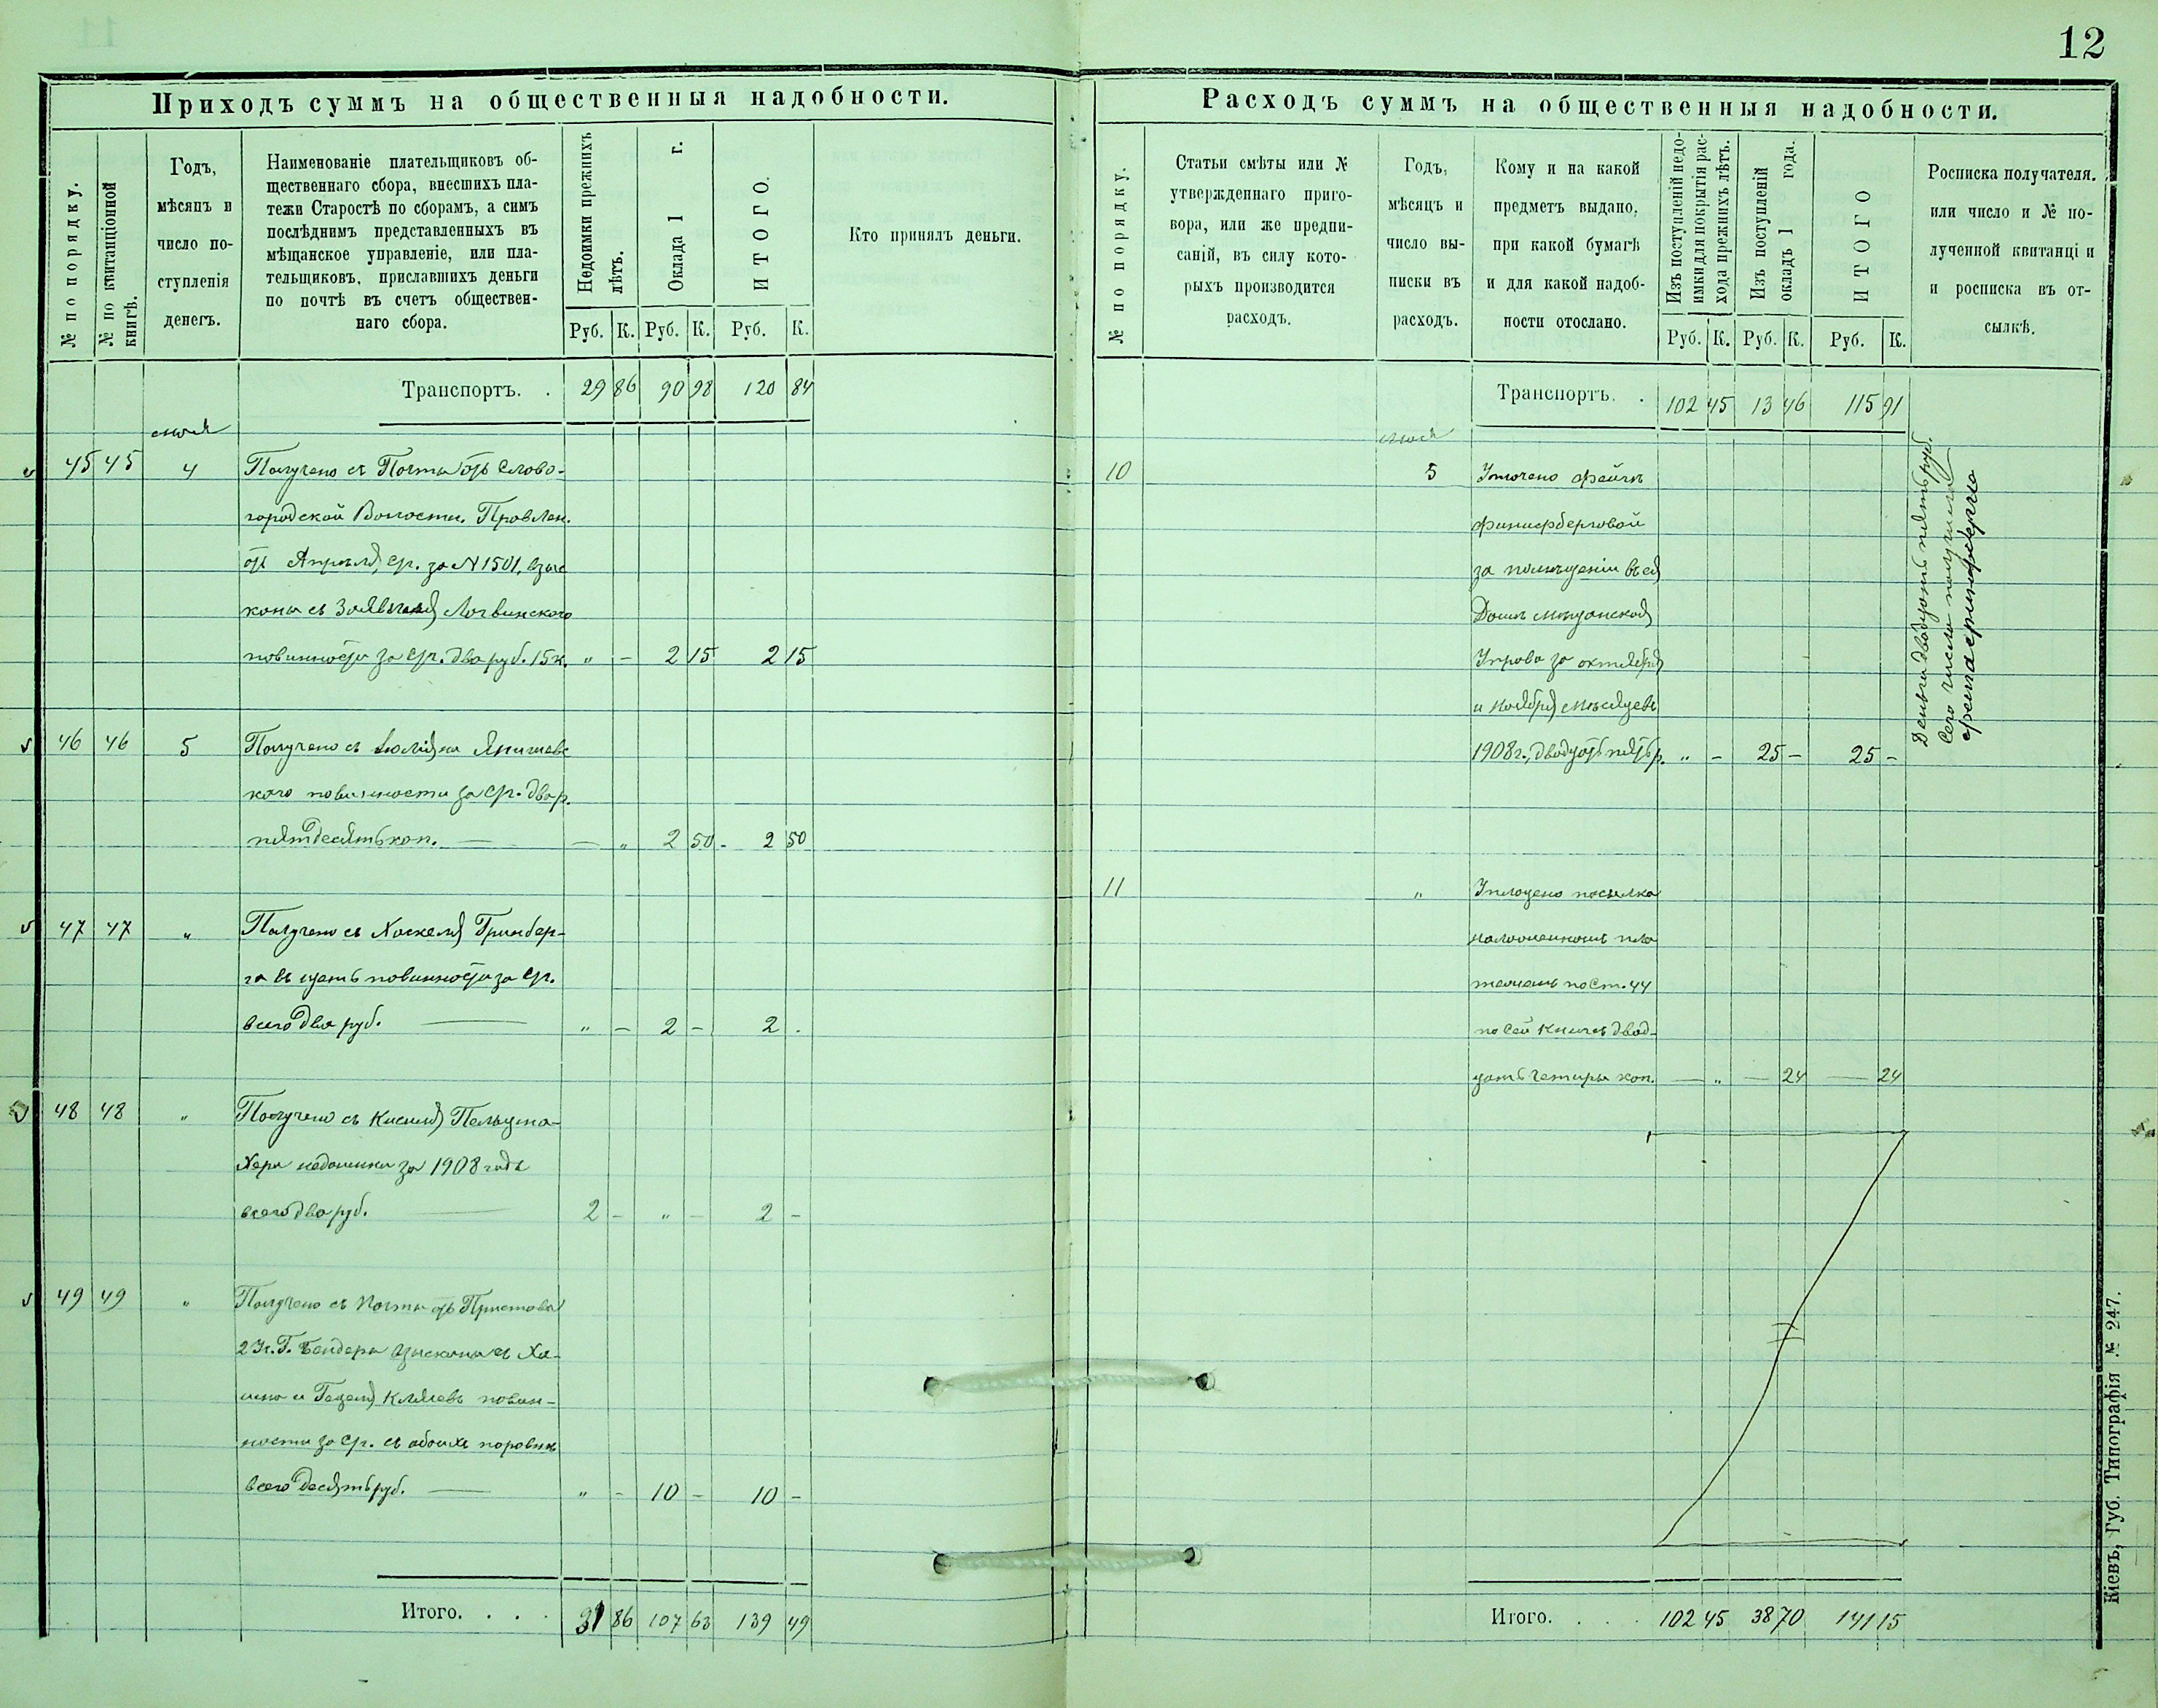 12
Приходъ суммъ на общественныя надобности.
№ по порядку.
№ по квитанціонной книгѣ.
Годъ,
мѣсяцъ и
число по-
ступленія
денегъ.
Наименованіе плательщиковъ об-
щественнаго сбора, внесшихъ пла-
тежи Старостѣ по сборамъ, а симъ
послѣднимъ представленныхъ въ
мѣщанское управленіе, или пла-
тельщиковъ, приславшихъ деньги
по почтѣ въ счетъ обществен-
наго сбора.
Недоимки прежнихъ
лѣтъ.
Оклада 1 г.
ИТОГО.
Кто принялъ деньги.
Руб. К. Руб. К. Руб. К.
Транспортъ. . 29 86 90 98 120 84
45 45 4 Получено съ Почты отъ Слово-
городской Волости. Правлен.
отъ Апрѣля с/г. за № 1501, взыс
каны съ Логвинского
повинности за с/г. два руб. 15 к. „ – 2 15 2 15
46 46 5 Получено съ Янишевс
кого повинности за с/г. два р.
пятдесятъ коп. — — „ 2 50 - 2 50
47 47 „ Получено съ Хаскеля Гринбер-
га въ щетъ повинности за с/г.
всего два руб. — „ – 2 – 2 -
48 48 „ Получено съ Кисиля Пельцма-
хера недоимки за 1908 годъ
всего два руб. — 2 – „ – 2 –
49 49 „ Получено съ Почты отъ Пристава
2 Уч. Г. Бендеръ взысканы съ Ха-
има и Гецеля повин-
ности за с/г. съ обоихъ поровнѣ
всего десять руб. — „ – 10 – 10 –
Итого. . . . 31 86 107 63 139 49
Расходъ суммъ на общественныя надобности.
№ по порядку.
Статьи смѣты или №
утвержденнаго приго-
вора, или же предпи-
саній, въ силу кото-
рыхъ производится
расходъ.
Годъ,
мѣсяцъ и
число вы-
писки въ
расходъ.
Кому и на какой
предметъ выдано,
при какой бумагѣ
и для какой надоб-
ности отослано.
Изъ поступленій недо-
имки для покрытія рас-
хода прежнихъ лѣтъ.
Изъ поступленій
окладъ 1 года.
ИТОГО
Росписка получателя.
или число и № по-
лученной квитанціи
и росписка въ от-
сылкѣ.
Руб. К. Руб. К. Руб. К.
Транспортъ. . 102 45 13 46 115 91
10 5 Уплочено Фейгѣ
Финифберговой
за помѣщеніи въ ея
Домѣ мѣщанской
Управа за октября
и ноября мѣсяцевъ
1908 г., двадцать пять р. „ – 25 – 25 –
Деньги двадцать пять руб.
Сего числа получила
11 „ Уплачено посылка
наложеннымъ пла
тежемъ по ст. 44
по сей книгѣ двад-
цать четыры коп. — „ — 24 — 24
Итого. . . . 102 45 38 70 141 15
Кіевъ, Губ. Типографія № 247.